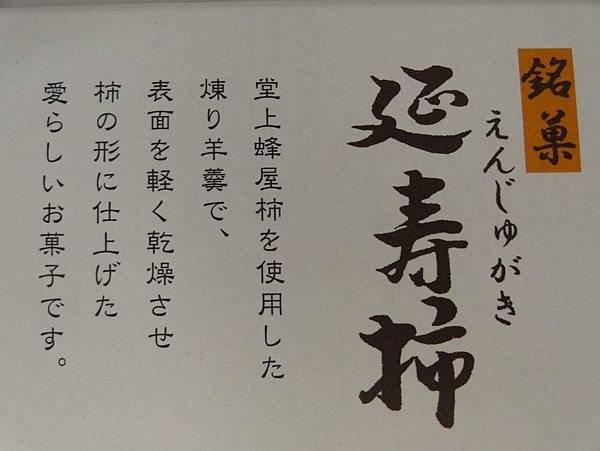 銘菓
えんじゅがき
延寿柿
堂上蜂屋柿を使用した
煉り羊羹で、
表面を軽く乾燥させ
柿の形に仕上げた
愛らしいお菓子です。